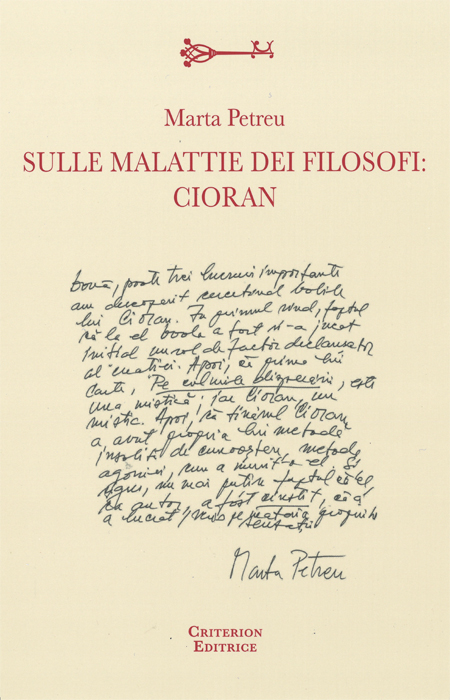 Marta Petreu
SULLE MALATTIE DEI FILOSOFI:
CIORAN
două, poate trei lucruri importante
am descoperit cercetând bolile
lui Cioran. În primul rînd, faptul
că la el boala a fost și-a jucat
inițial un rol de factor declanșator
al creației. Apoi, că prima lui
carte, Pe culmile disperării, este
una mistică; iar Cioran, un
mistic. Apoi, că tînărul Cioran
a avut propria lui metodă
insolită de cunoaștere, metoda
agoniei, cum a numit-o el. Și
sigur, nu mai puțin faptul că el
ca autor, a fost cinstit, că a
a lucrat pe materia propriilor
senzații
Marta Petreu
CRITERION
EDITRICE